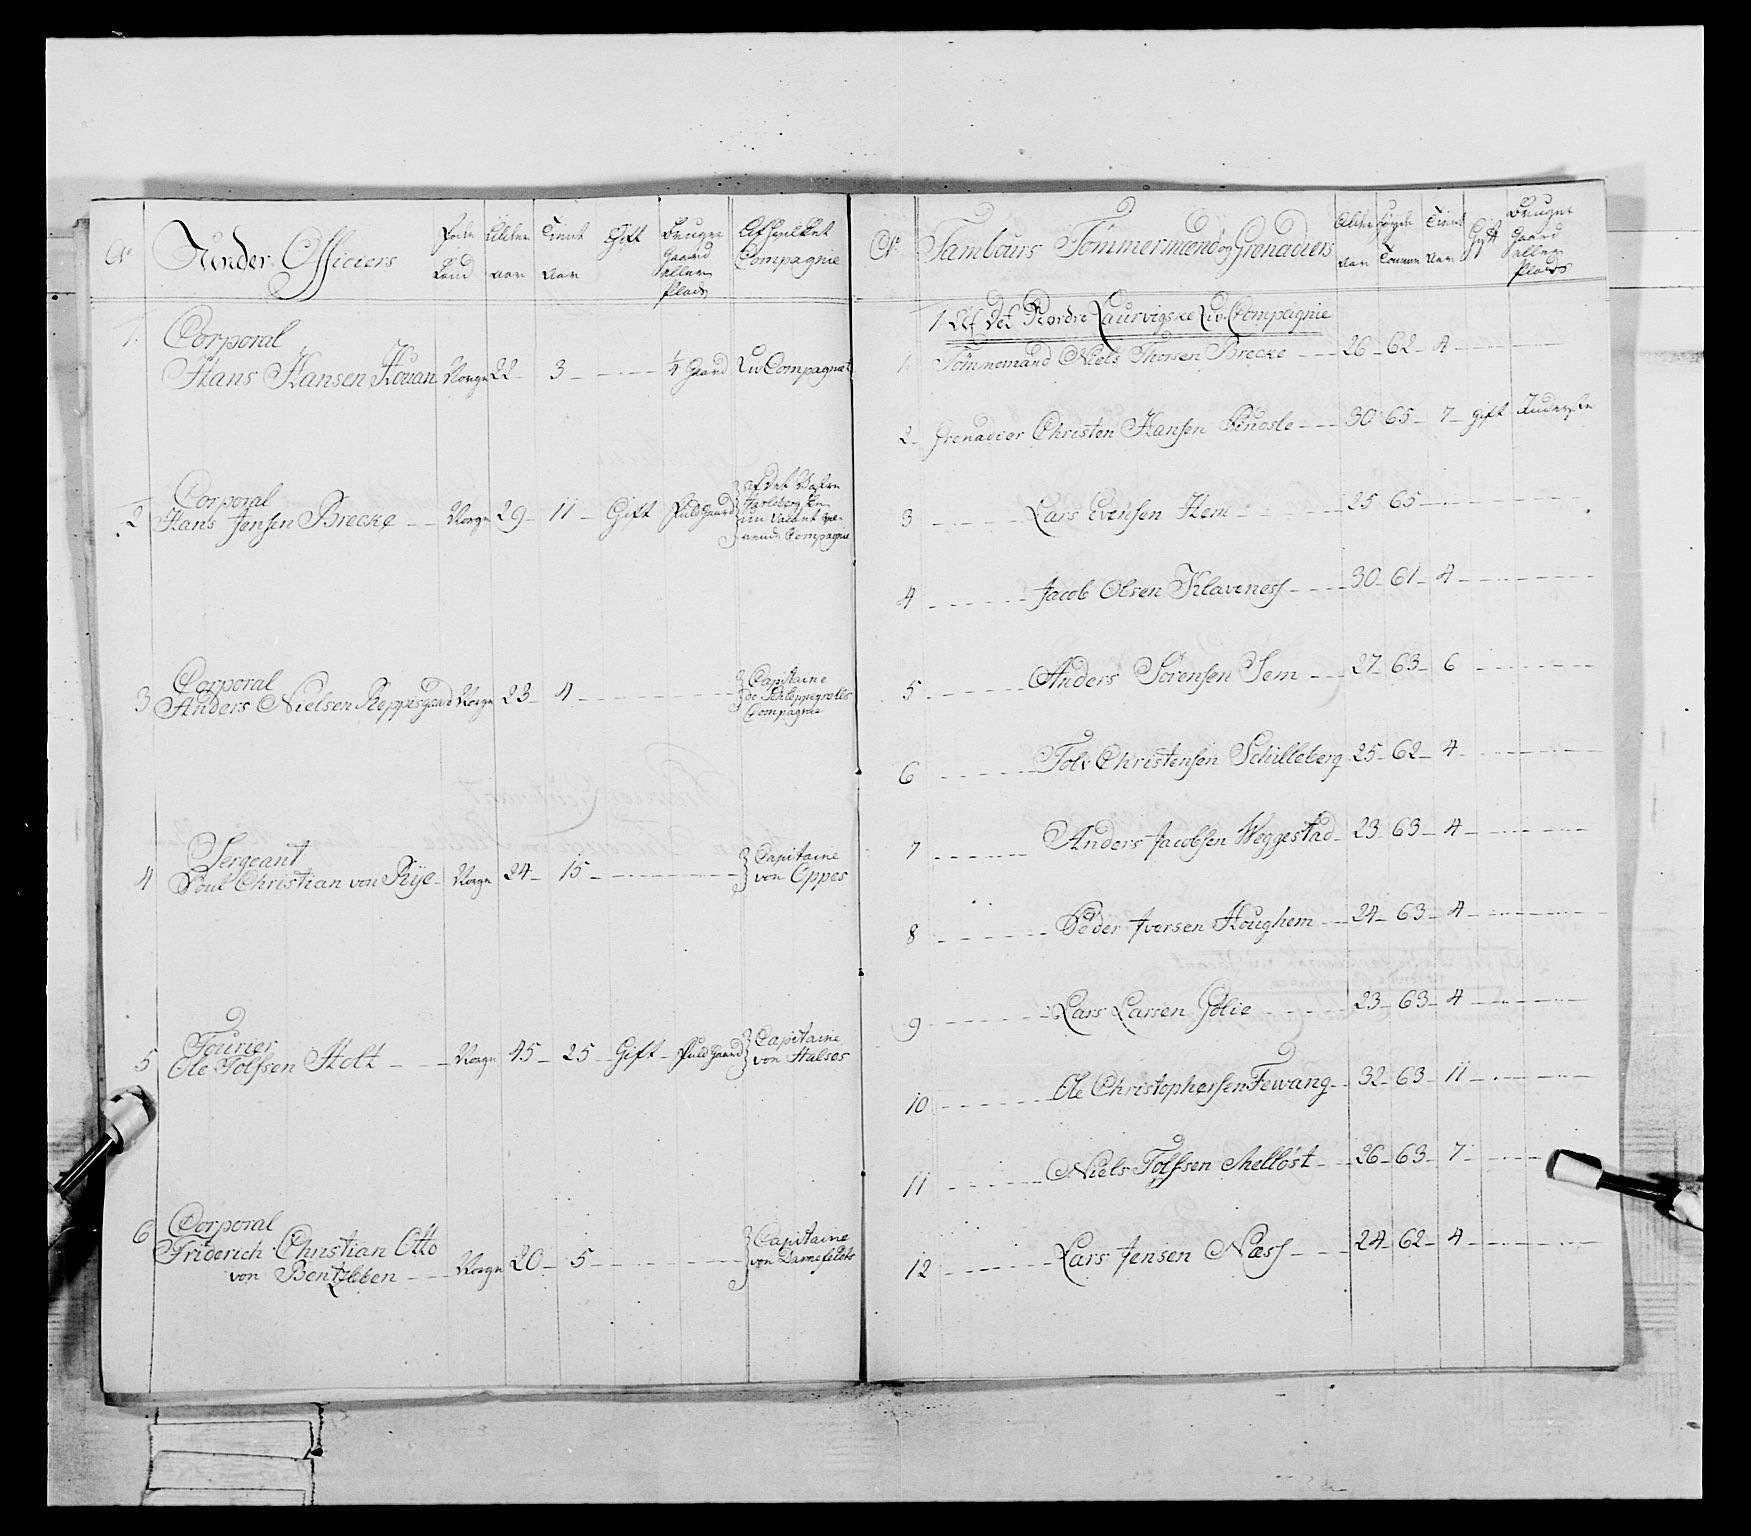 No Under Officiers Føde Land Alder aar Tient Aar Gift Bruger Gaard eller Plads Af hvilket Compagnie
1. Corporal
Hans Hansen Houan Norge 22 3 ¼ Gaard Liv Compagniet
2 Corporal
Hans Jensen Brecke Norge 29 11 Gift Fuld Gaard af det
nu Vacant
Compagnie
3 Corporal
Anders Nielsen Reppisgaard Norge 23 4 Capitaine
de Schleppegrells
Compagnie
4 Sergeant
Poul Christian von Rye Norge 24 15 Capitaine
von Oppes
5 Fourier
Ole Tolfsen Holt Norge 45 25 Gift Fuld Gaard Capitaine
von Hulsos
6 Corporal
Friderich Christian Otto
von Bentzleben Norge 20 5 Capitaine
von
No Tambours Tømmermænd og Grenadiers Alder Aar Høyde Tommer Tient Aar Gift Bruger Gaard eller Plads
1. Af Det Nordre Laurvigske Liv Compagnie
1. Tømmemand Niels Thorsen Brecke 26 62 4
2 Grenadier Christen Hansen Rinosle 30 65 7 gift
3 Lars Evensen Hem 25 65
4 Jacob Olsen Klavenes 30 61 4
5 Anders Sørensen Sem 27 63 6
6 Tolv Christensen Schilleberg 25 62 4
7 Anders Jacobsen Weggestad 23 63 4
8 Peder Iversen Houghem 24 63 4
9 Lars Larsen Jølie 23 63 4
10 Ole Christophersen Fewang 32 63 11
11 Niels Tolfsen Melløst 26 63 7
12 Lars Jensen Næss 24 62 4